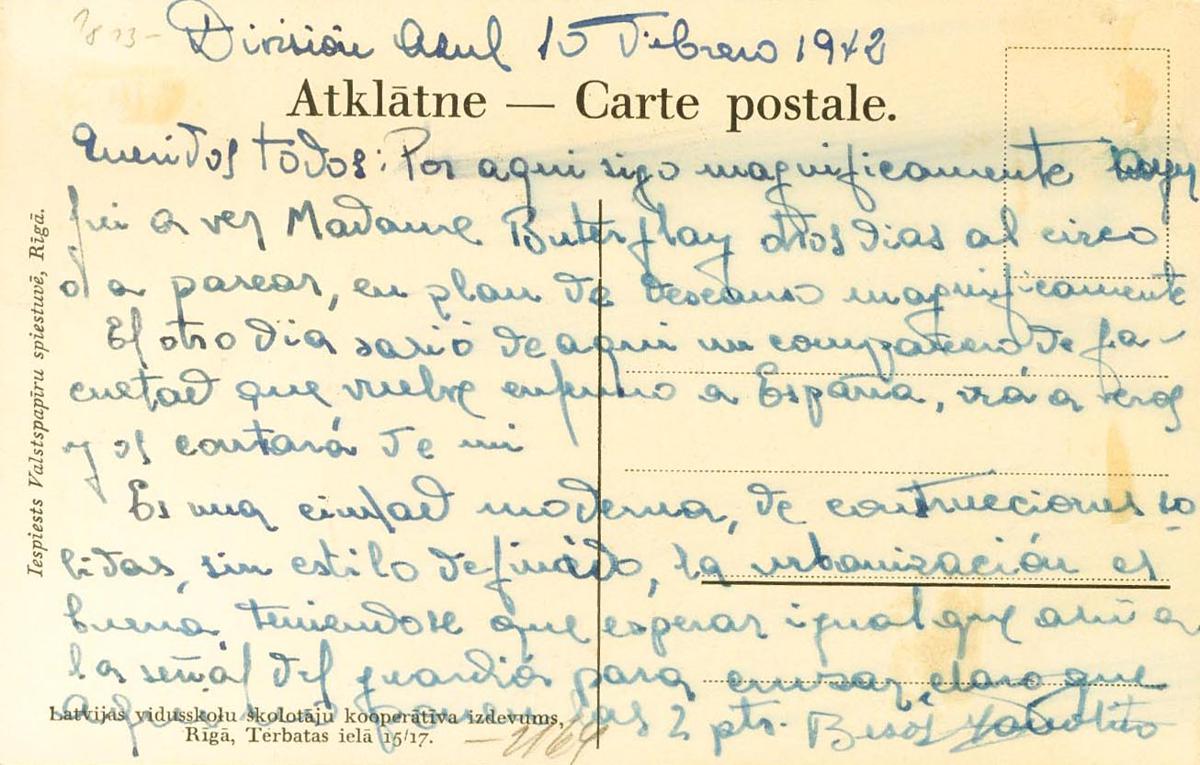 División Azul 15 Febrero 1942
Atklātne — Carte postale.
Queridos todos: Por aqui sigo magnificamente
fui a ver Madame Buterflay otros dias al circo
o a pasear, en plan de descanso magnificamente
El otro dia salió de aqui un compañero de fa-
cultad que vuelve enfermo a España, irá a veros
y os contará de mi
Es una ciudad moderna, de contrucciones so
lidas, sin estilo definido, la urbanización es
buena, teniendose que esperar igual que ahi a
la señal del guardia para cruzar, claro que
aqui 2 pts. Besos
Iespiests Valstspapīru spiestuvē, Rīgā.
Latvijas vidusskolu skolotāju kooperātīva izdevums,
Rīgā, Tērbatas ielā 15/17.